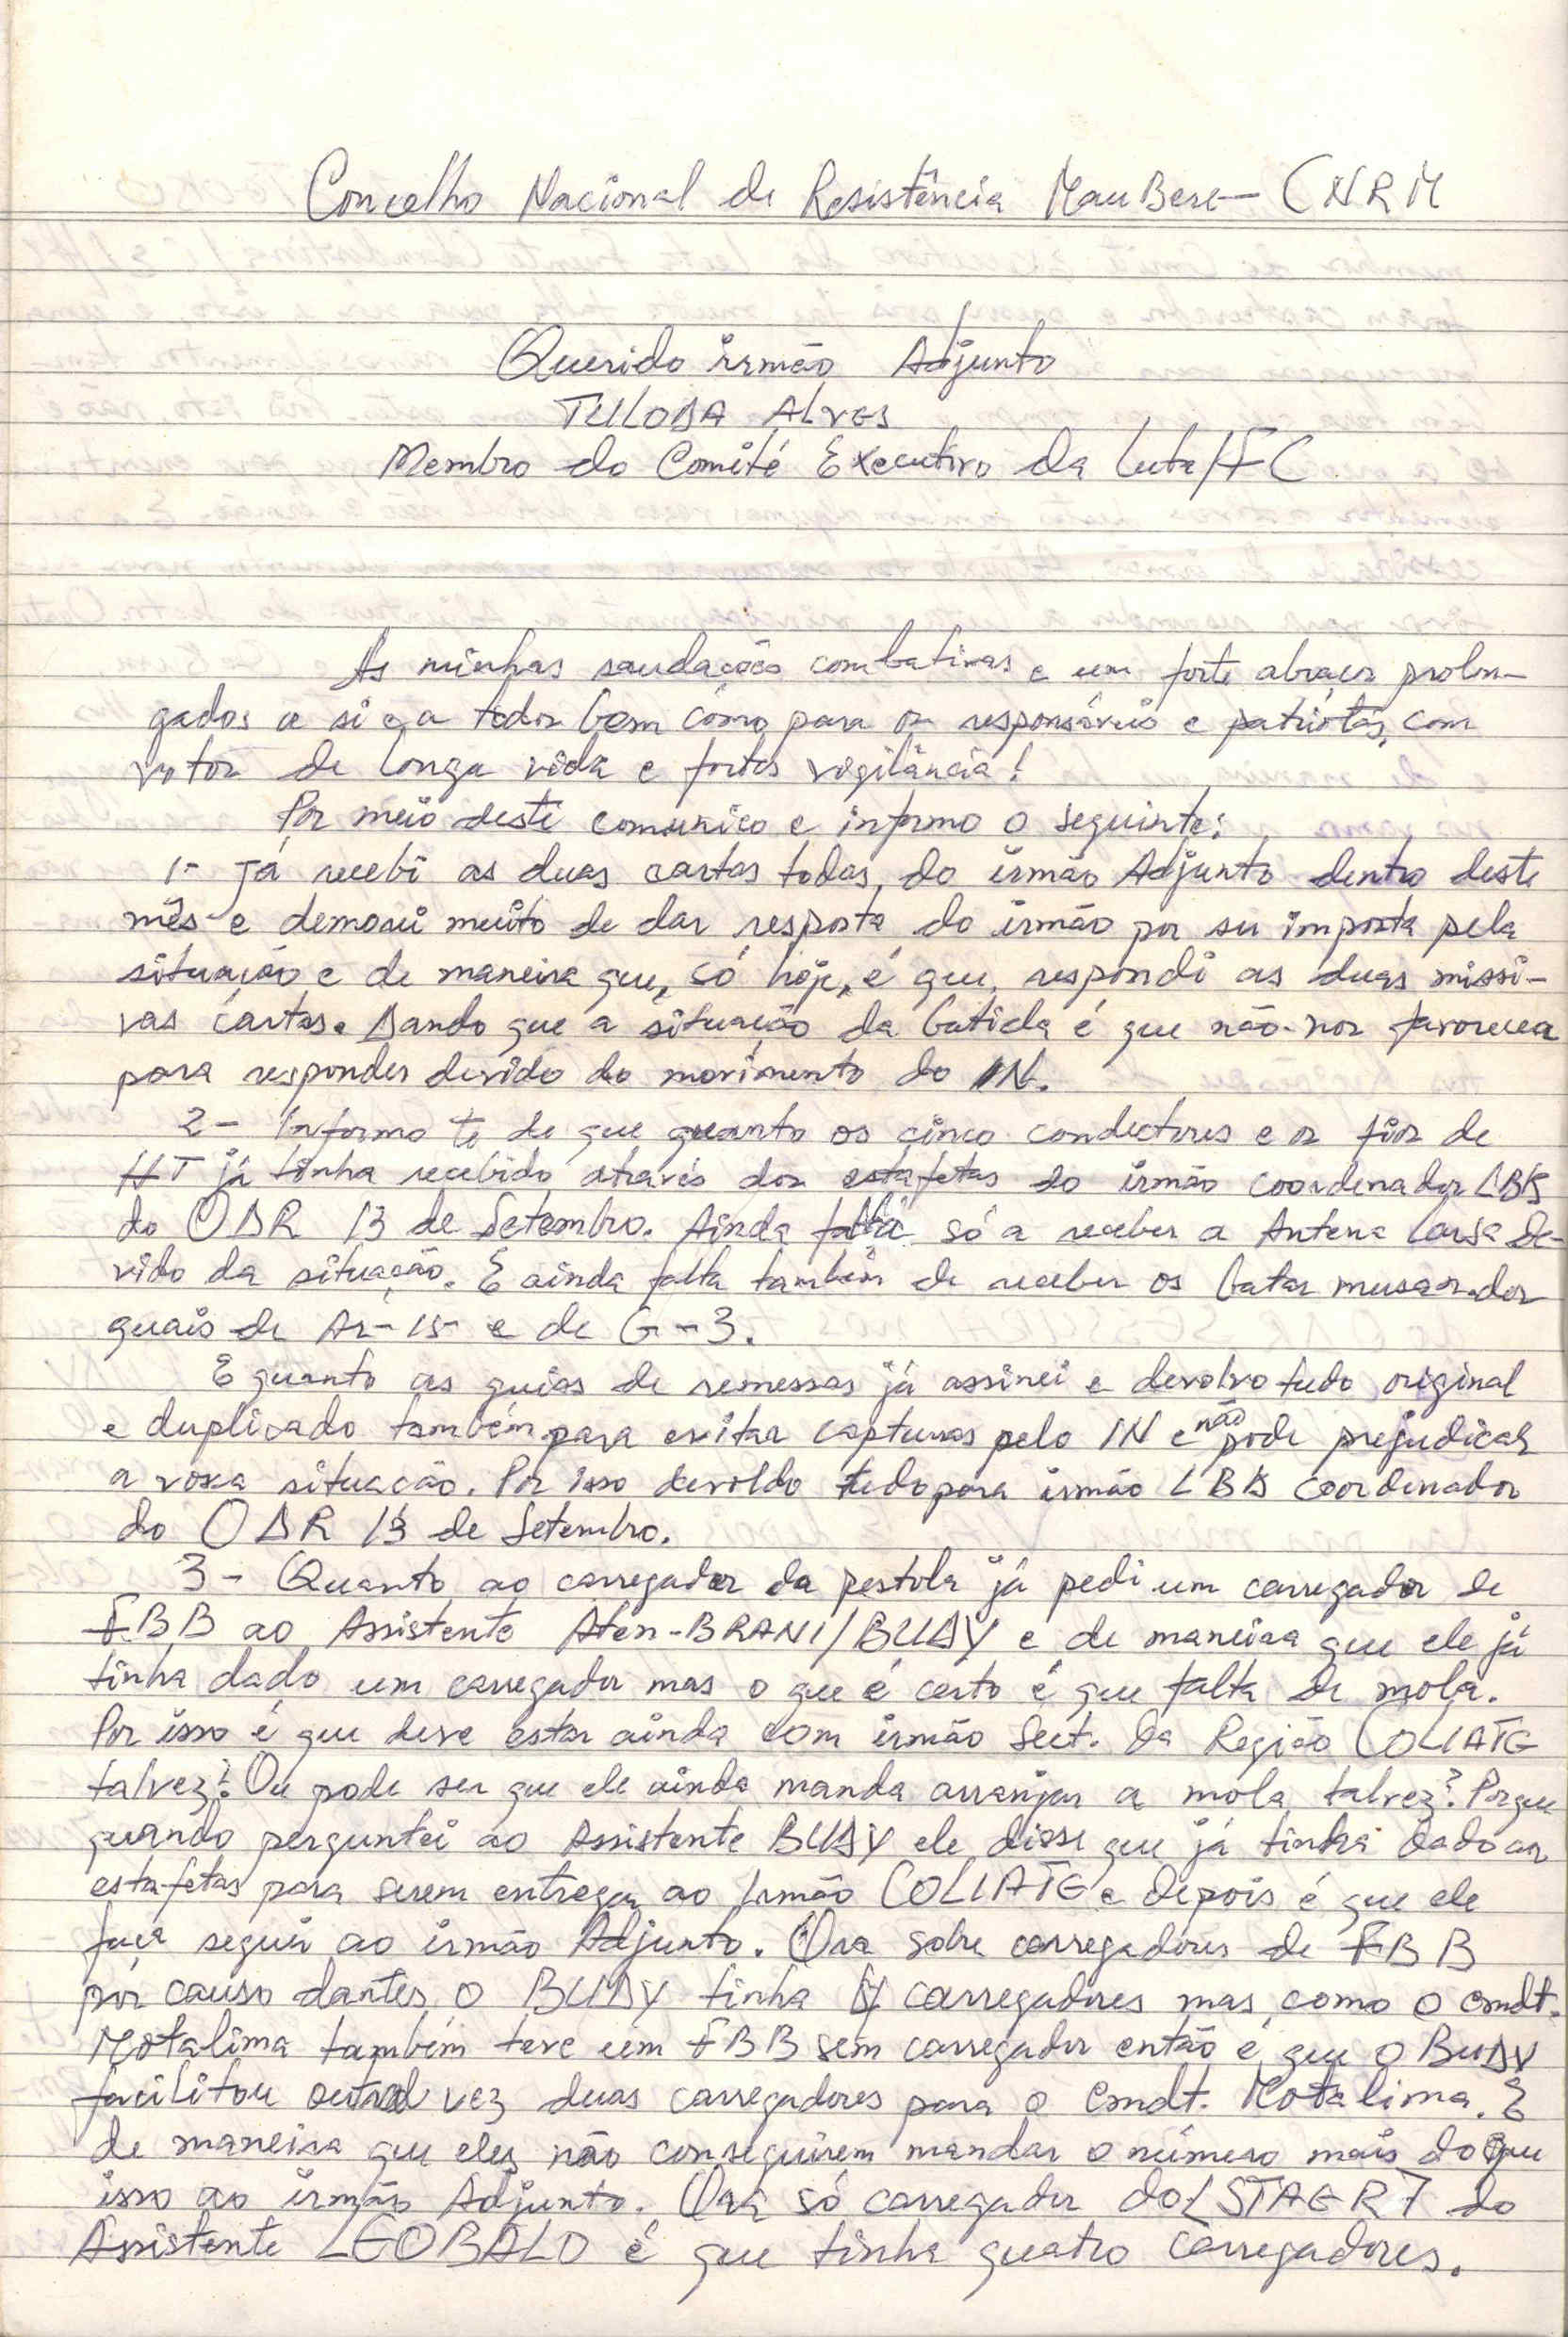 Concelho Nacional de Resistência MauBere – CNRM
Querido irmão Adjunto
TULODA ALVES
Membro do Comité Executivo da Luta/FC
As minhas saudações combativas e um forte abraços prolon-
gados a si e a todos bem como para os responsáveis e patriótas, com
votos de longa vida e fortes vigilância!
Por meio deste comunico e informo o seguinte:
1- Já recebi as duas cartas todas, do irmão Adjunto dentro deste
mês e demorei muito de dar resposta do irmão por ser imposta pela
situação e de maneira que, só hoje, é que, respondi as duas missi-
vas cartas. Dando que a situação da batida é que não nos favoreceu
para responder devido do movimento do IN.
2- Informo te de que quanto os cinco condectores e os fios de
HT já tinha recebido através dos estafetas do irmão coordenador LBD
do ODR 13 de Setembro. Ainda falta só a receber a Antena larga de-
vido da situação. E ainda falta também de receber os batas dos
quais de Ar-15 e de G-3.
E quanto as guias de remessas já assinei e devolvo tudo original
e duplicado também para evitar capturas pelo IN e não pode prejudicar
a vossa situação. Por isso devoldo tudo para irmão LBD coordenador
do ODR 13 de Setembro.
3- Quanto ao carregador da pestola já pedi um carregador de
FBB ao Assistente Aten-BRANI/BUDY e de maneira que ele já
tinha dado um carregador mas o que é certo é que falta de mola.
Por isso é que deve estar ainda com irmão Sect. da Região COLIATE
talvez? Ou pode ser que ele ainda manda arranjar a mola talvez? Porque
quando perguntei ao Assistente BUDY ele disse que já tinha dado aos
estafetas para serem entregar ao Irmão COLIATE e depois é que ele
faça seguir ao irmão Adjunto. Ora sobre carregadores de FBB
por causo dantes o BUDY tinha carregadores mas como o cmdt.
Motalima também teve um FBB sem carregador então é que o BUDY
facilitou outra vez duas carregadores para o Cmdt. Motalima. E
de maneira que eles não conseguirem mandar o número mais do que
isso ao irmão Adjunto. Ora só carregador do do
Assistente LEOBALD é que tinha quatro carregadores.